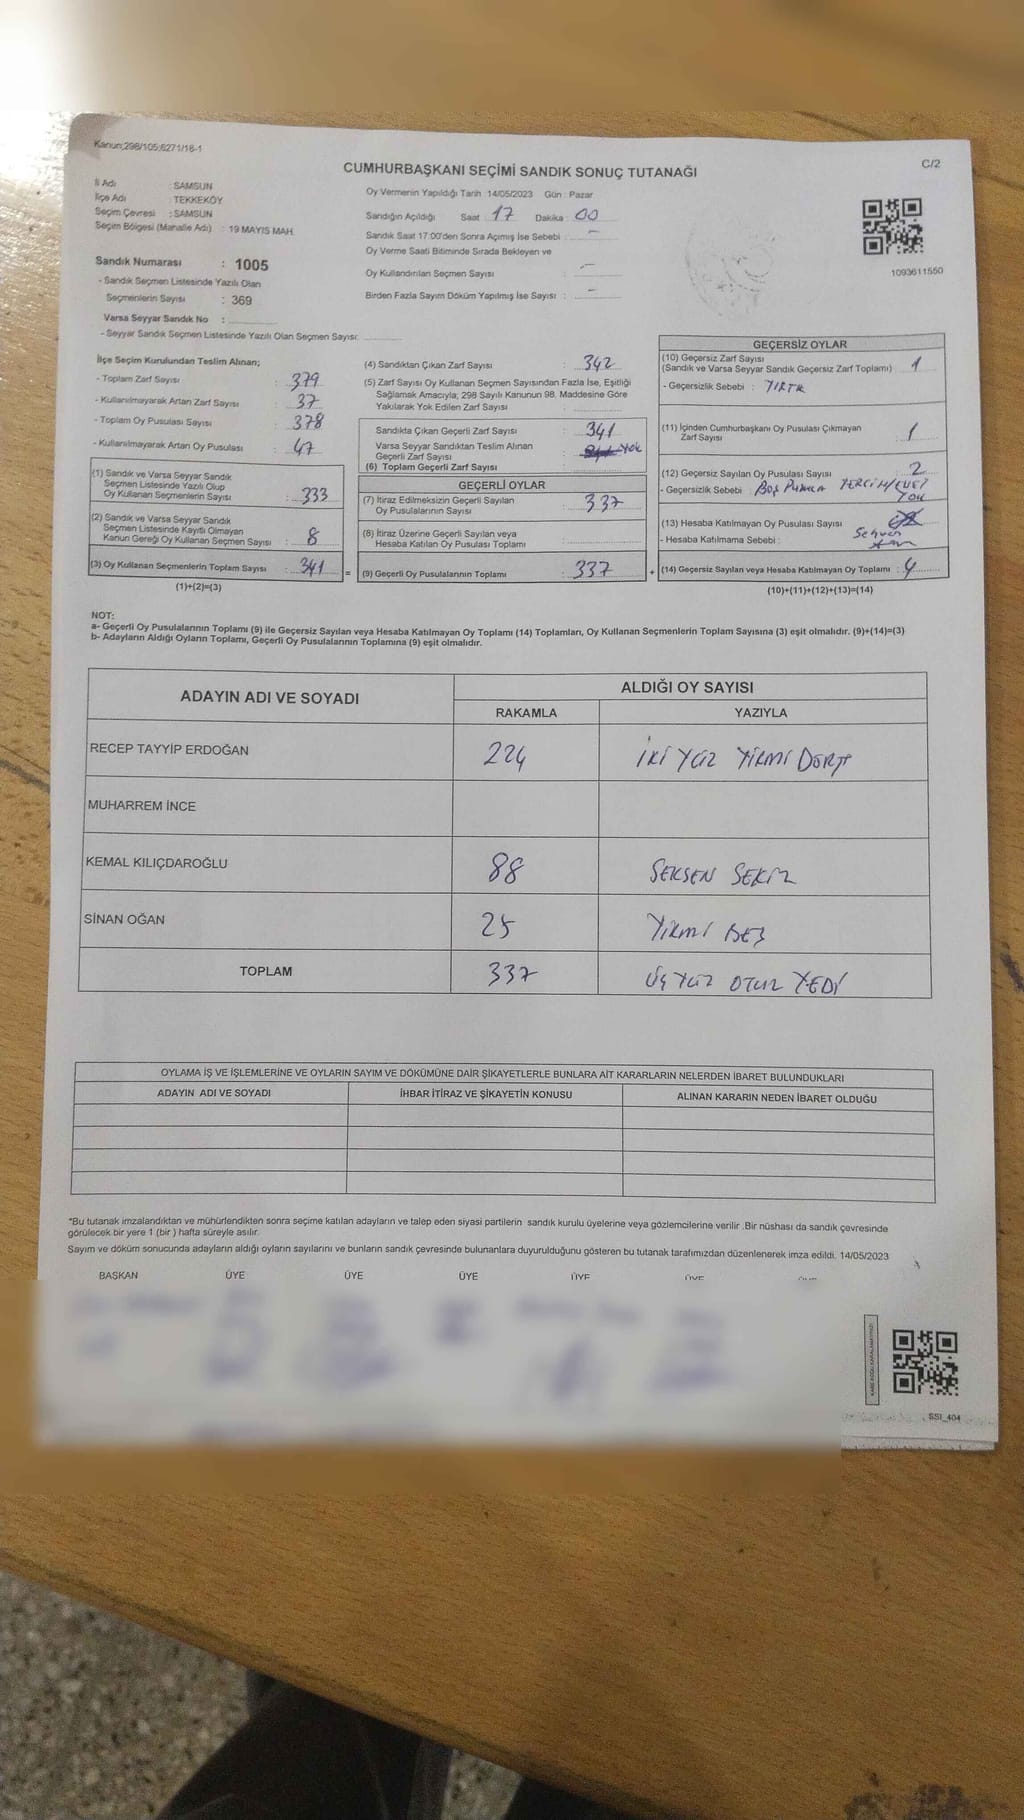 Kanun;298/105;6271/18-1
C/2
CUMHURBAŞKANI SEÇİMİ SANDIK SONUÇ TUTANAĞI
İl Adı : SAMSUN
İlçe Adı : TEKKEKÖY
Seçim Çevresi : SAMSUN
Seçim Bölgesi (Mahalle Adı) : 19 MAYIS MAH.
Sandık Numarası : 1005
- Sandık Seçmen Listesinde Yazılı Olan
Seçmenlerin Sayısı : 369
Varsa Seyyar Sandık No :
- Seyyar Sandık Seçmen Listesinde Yazılı Olan Seçmen Sayısı:
Oy Vermenin Yapıldığı Tarih 14/05/2023 Gün : Pazar
Sandığın Açıldığı Saat 17 Dakika 00
Sandık Saat 17:00'den Sonra Açılmış İse Sebebi : -
Oy Verme Saati Bitiminde Sırada Bekleyen ve
Oy Kullandırılan Seçmen Sayısı : -
Birden Fazla Sayım Döküm Yapılmış İse Sayısı : -
1093611550
İlçe Seçim Kurulundan Teslim Alınan;
- Toplam Zarf Sayısı : 379
- Kullanılmayarak Artan Zarf Sayısı : 37
- Toplam Oy Pusulası Sayısı : 378
- Kullanılmayarak Artan Oy Pusulası : 47
(1) Sandık ve Varsa Seyyar Sandık
Seçmen Listesinde Yazılı Olup
Oy Kullanan Seçmenlerin Sayısı : 333
(2) Sandık ve Varsa Seyyar Sandık
Seçmen Listesinde Kayıtlı Olmayan
Kanun Gereği Oy Kullanan Seçmen Sayısı : 8
(3) Oy Kullanan Seçmenlerin Toplam Sayısı : 341
(1)+(2)=(3)
(4) Sandıktan Çıkan Zarf Sayısı : 342
(5) Zarf Sayısı Oy Kullanan Seçmen Sayısından Fazla İse, Eşitliği
Sağlamak Amacıyla; 298 Sayılı Kanunun 98. Maddesine Göre
Yakılarak Yok Edilen Zarf Sayısı :
Sandıkta Çıkan Geçerli Zarf Sayısı : 341
Varsa Seyyar Sandıktan Teslim Alınan
Geçerli Zarf Sayısı : Yok
(6) Toplam Geçerli Zarf Sayısı :
GEÇERLİ OYLAR
(7) İtiraz Edilmeksizin Geçerli Sayılan
Oy Pusulalarının Sayısı : 337
(8) İtiraz Üzerine Geçerli Sayılan veya
Hesaba Katılan Oy Pusulası Toplamı :
= (9) Geçerli Oy Pusulalarının Toplamı : 337 +
GEÇERSİZ OYLAR
(10) Geçersiz Zarf Sayısı
(Sandık ve Varsa Seyyar Sandık Geçersiz Zarf Toplamı) : 1
- Geçersizlik Sebebi : YIRTK
(11) İçinden Cumhurbaşkanı Oy Pusulası Çıkmayan
Zarf Sayısı : 1
(12) Geçersiz Sayılan Oy Pusulası Sayısı : 2
- Geçersizlik Sebebi : BOŞ PUSULA TERCİH/EVET
YOK
(13) Hesaba Katılmayan Oy Pusulası Sayısı
- Hesaba Katılmama Sebebi :
(14) Geçersiz Sayılan veya Hesaba Katılmayan Oy Toplamı : 4
(10)+(11)+(12)+(13)=(14)
NOT:
a- Geçerli Oy Pusulalarının Toplamı (9) ile Geçersiz Sayılan veya Hesaba Katılmayan Oy Toplamı (14) Toplamları, Oy Kullanan Seçmenlerin Toplam Sayısına (3) eşit olmalıdır. (9)+(14)=(3)
b- Adayların Aldığı Oyların Toplamı, Geçerli Oy Pusulalarının Toplamına (9) eşit olmalıdır.
ADAYIN ADI VE SOYADI
ALDIĞI OY SAYISI
RAKAMLA YAZIYLA
RECEP TAYYİP ERDOĞAN 224 İKİ YÜZ YİRMİ DÖRT
MUHARREM İNCE
KEMAL KILIÇDAROĞLU 88 SEKSEN SEKİZ
SİNAN OĞAN 25 YİRMİ BEŞ
TOPLAM 337 ÜÇ YÜZ OTUZ YEDİ
OYLAMA İŞ VE İŞLEMLERİNE VE OYLARIN SAYIM VE DÖKÜMÜNE DAİR ŞİKAYETLERLE BUNLARA AİT KARARLARIN NELERDEN İBARET BULUNDUKLARI
ADAYIN ADI VE SOYADI İHBAR İTİRAZ VE ŞİKAYETİN KONUSU ALINAN KARARIN NEDEN İBARET OLDUĞU
*Bu tutanak imzalandıktan ve mühürlendikten sonra seçime katılan adayların ve talep eden siyasi partilerin sandık kurulu üyelerine veya gözlemcilerine verilir .Bir nüshası da sandık çevresinde
görülecek bir yere 1 (bir ) hafta süreyle asılır.
Sayım ve döküm sonucunda adayların aldığı oyların sayılarını ve bunların sandık çevresinde bulunanlara duyurulduğunu gösteren bu tutanak tarafımızdan düzenlenerek imza edildi. 14/05/2023
BAŞKAN ÜYE ÜYE ÜYE ÜYE ÜYE
KARE KODU KARALAMAYINIZ!
SSI_404